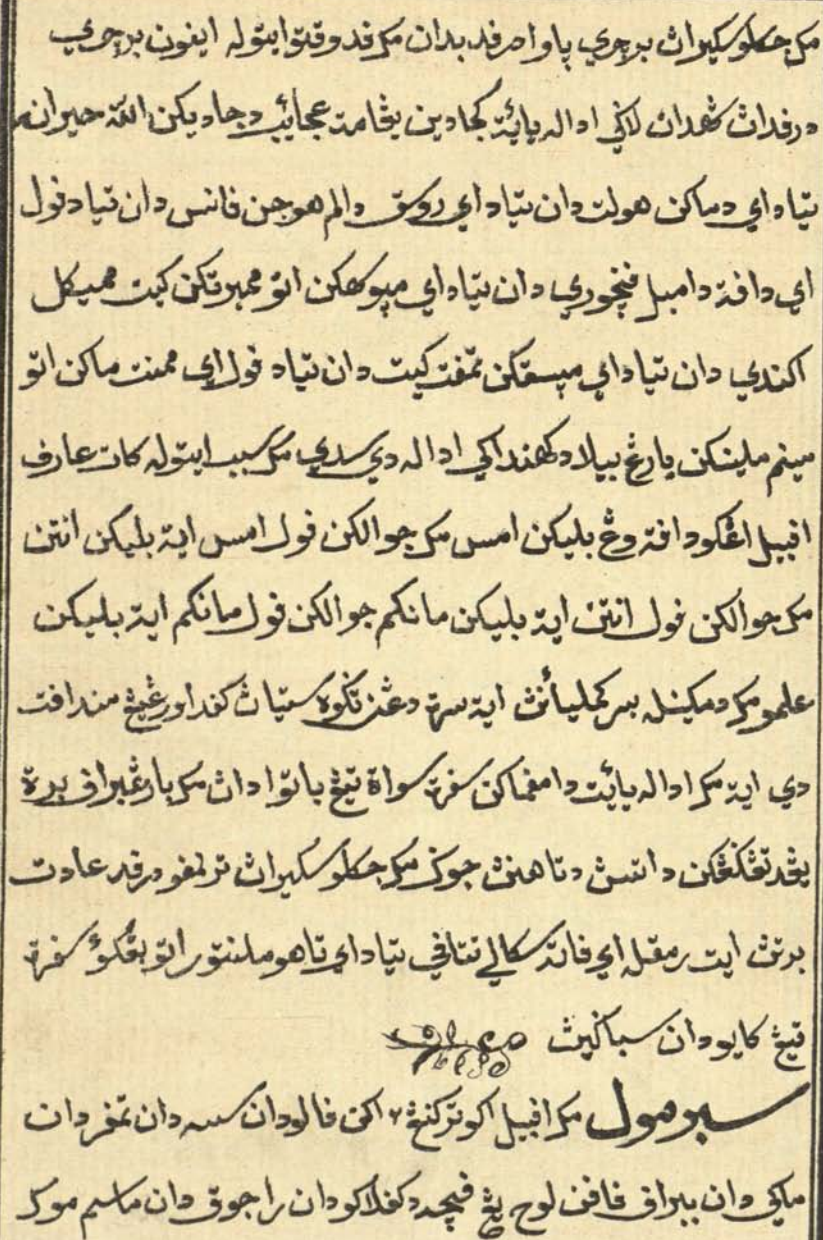 مک جکلو سکيراڽ برچري ڤاوا مرڤد بدان مک ڤدوقتو ايتوله ايفون برچري
درڤداڽ شهدان لاݢي اداله يائت کجادين يڠامة عجائب دجاديکن الله حيران
تياداي دماکن هولت دان تياداي روسق دالم هوجن ڤانس دان تياد ڤول
اي داڤة دامبل ڤنچوري دان تياداي مپوکهکن اتو ممبرتکن کيت مميکل
اکندي دان تياداي مپسقکن تمڤت کيت دان تياد ڤول اي ممنت ماکن اتو
مينم ملينکن بارڠ بيلا دکهنداکي اداله دي سدي مک سبب ايتوله کات عارف
اڤبيل اڠکو داڤة وڠ بليکن امس مک جوالکن ڤول امس ايت بليکن انتن
مک جوالکن ڤول انتن ايت بليکن مانکم جوالکن ڤول مانکم ايت بليکن
علمو مک دمکينله بسر کمليأنڽ ايت سرت دڠن تݢوه ستياڽ کڤد اورڠيڠ منداڤت
دي ايت مک اداله يائت دامڤماکن سڤرت سواة تيڠ باتو ادان مک بارڠبراڤ برة
يڠد تڠکڠکن داتسڽ دتاهنڽ جوݢ مک جکلو سکيراڽ ترلمڤو درڤد عادت
برتڽ ايت رمقله اي ڤاته سکالي تتاڤي تياداي تاهو ملنتور اتو بڠکوء سڤرت
تيڠ کايو دان سباݢيڽ
سبرمول مک اڤبيل اکو ترکنڠ٢ اکن ڤالو دان سسه دان تمڤر دان
ماکي دان ببراڤ ڤاڤن لوح يڠ ڤچه دکڤلاکو دان راجوق دان ماسم موک